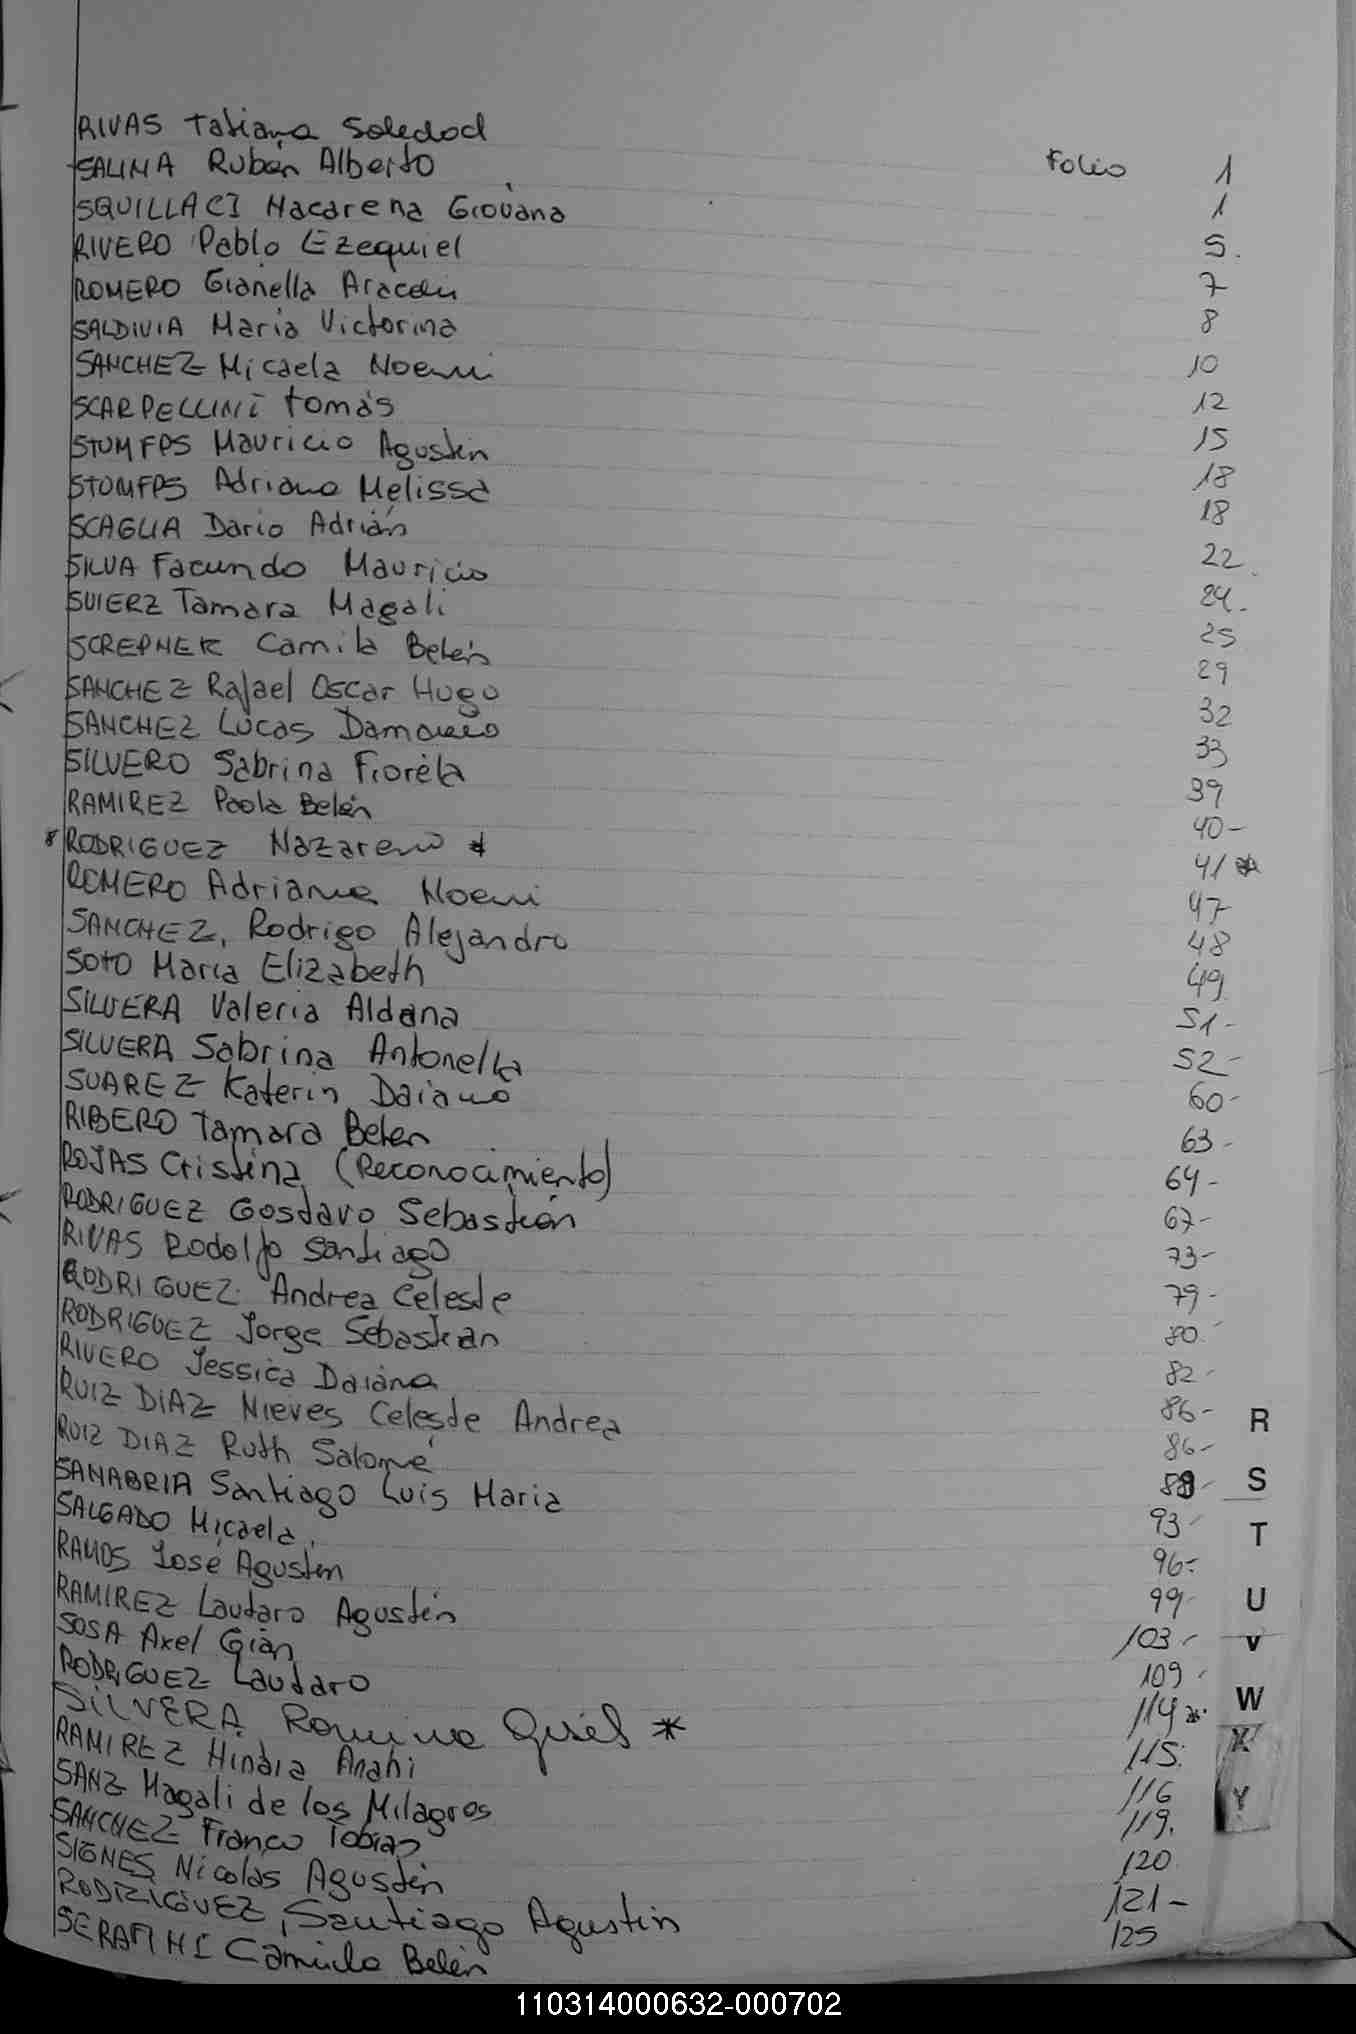 RIVAS Tatiana Soledad Folio 1
SALINA Rubén Alberto 1
SQUILLACI Macarena Giovana 5.
RIVERO Pablo Ezequiel 7
ROMERO Gianella Araceli 8
SALDIVIA Maria Victorina 10
SANCHEZ Micaela Noemi 12
SCARPELLINI tomás 15
STUMFPS Mauricio Agustín 18
STUMFPS Adriana Melissa 18
SCAGLIA Dario Adrián 22
SILVA Facundo Mauricio 24.
SUIERZ Tamara Magali 25
SCREPNEK Camila Belén 29
SANCHEZ Rafael Oscar Hugo 32
SANCHEZ Lucas Damario 33
SILVERO Sabrina Fiorela 39
RAMIREZ Paola Belén 40-
* RODRIGUEZ Nazareno * 41 *
ROMERO Adriana Noemi 47
SANCHEZ, Rodrigo Alejandro 48
SOTO Maria Elizabeth 49
SILVERA Valeria Aldana 51-
SILVERA Sabrina Antonella 52-
SUAREZ Katerin Daiana 60-
RIBERO Tamara Belen 63-
ROJAS Cristina (Reconocimiento) 64-
RODRIGUEZ Gustavo Sebastián 67-
RIVAS Rodolfo Santiago 73-
RODRIGUEZ Andrea Celeste 79-
RODRIGUEZ Jorge Sebastian 80
RIVERO Jessica Daiana 82-
RUIZ DIAZ Nieves Celeste Andrea 86-
RUIZ DIAZ Ruth Salomé 86-
SANABRIA Santiago Luis Maria 89-
SALGADO Micaela 93-
RAMOS José Agustin 96-
RAMIREZ Lautaro Agustín 99-
SOSA Axel Gian 103-
RODRIGUEZ Lautaro 109-
SILVERA Romina Gisel * 114 *
RAMIREZ Hindia Anahi 115.
SANZ Magali de los Milagros 116
SANCHEZ Franco Tobias 119.
SIGNES Nicolas Agustín 120
RODRIGUEZ, Santiago Agustin 121-
SERAFINI Camila Belén 125
R
S
T
U
V
W
X
Y
110314000632-000702